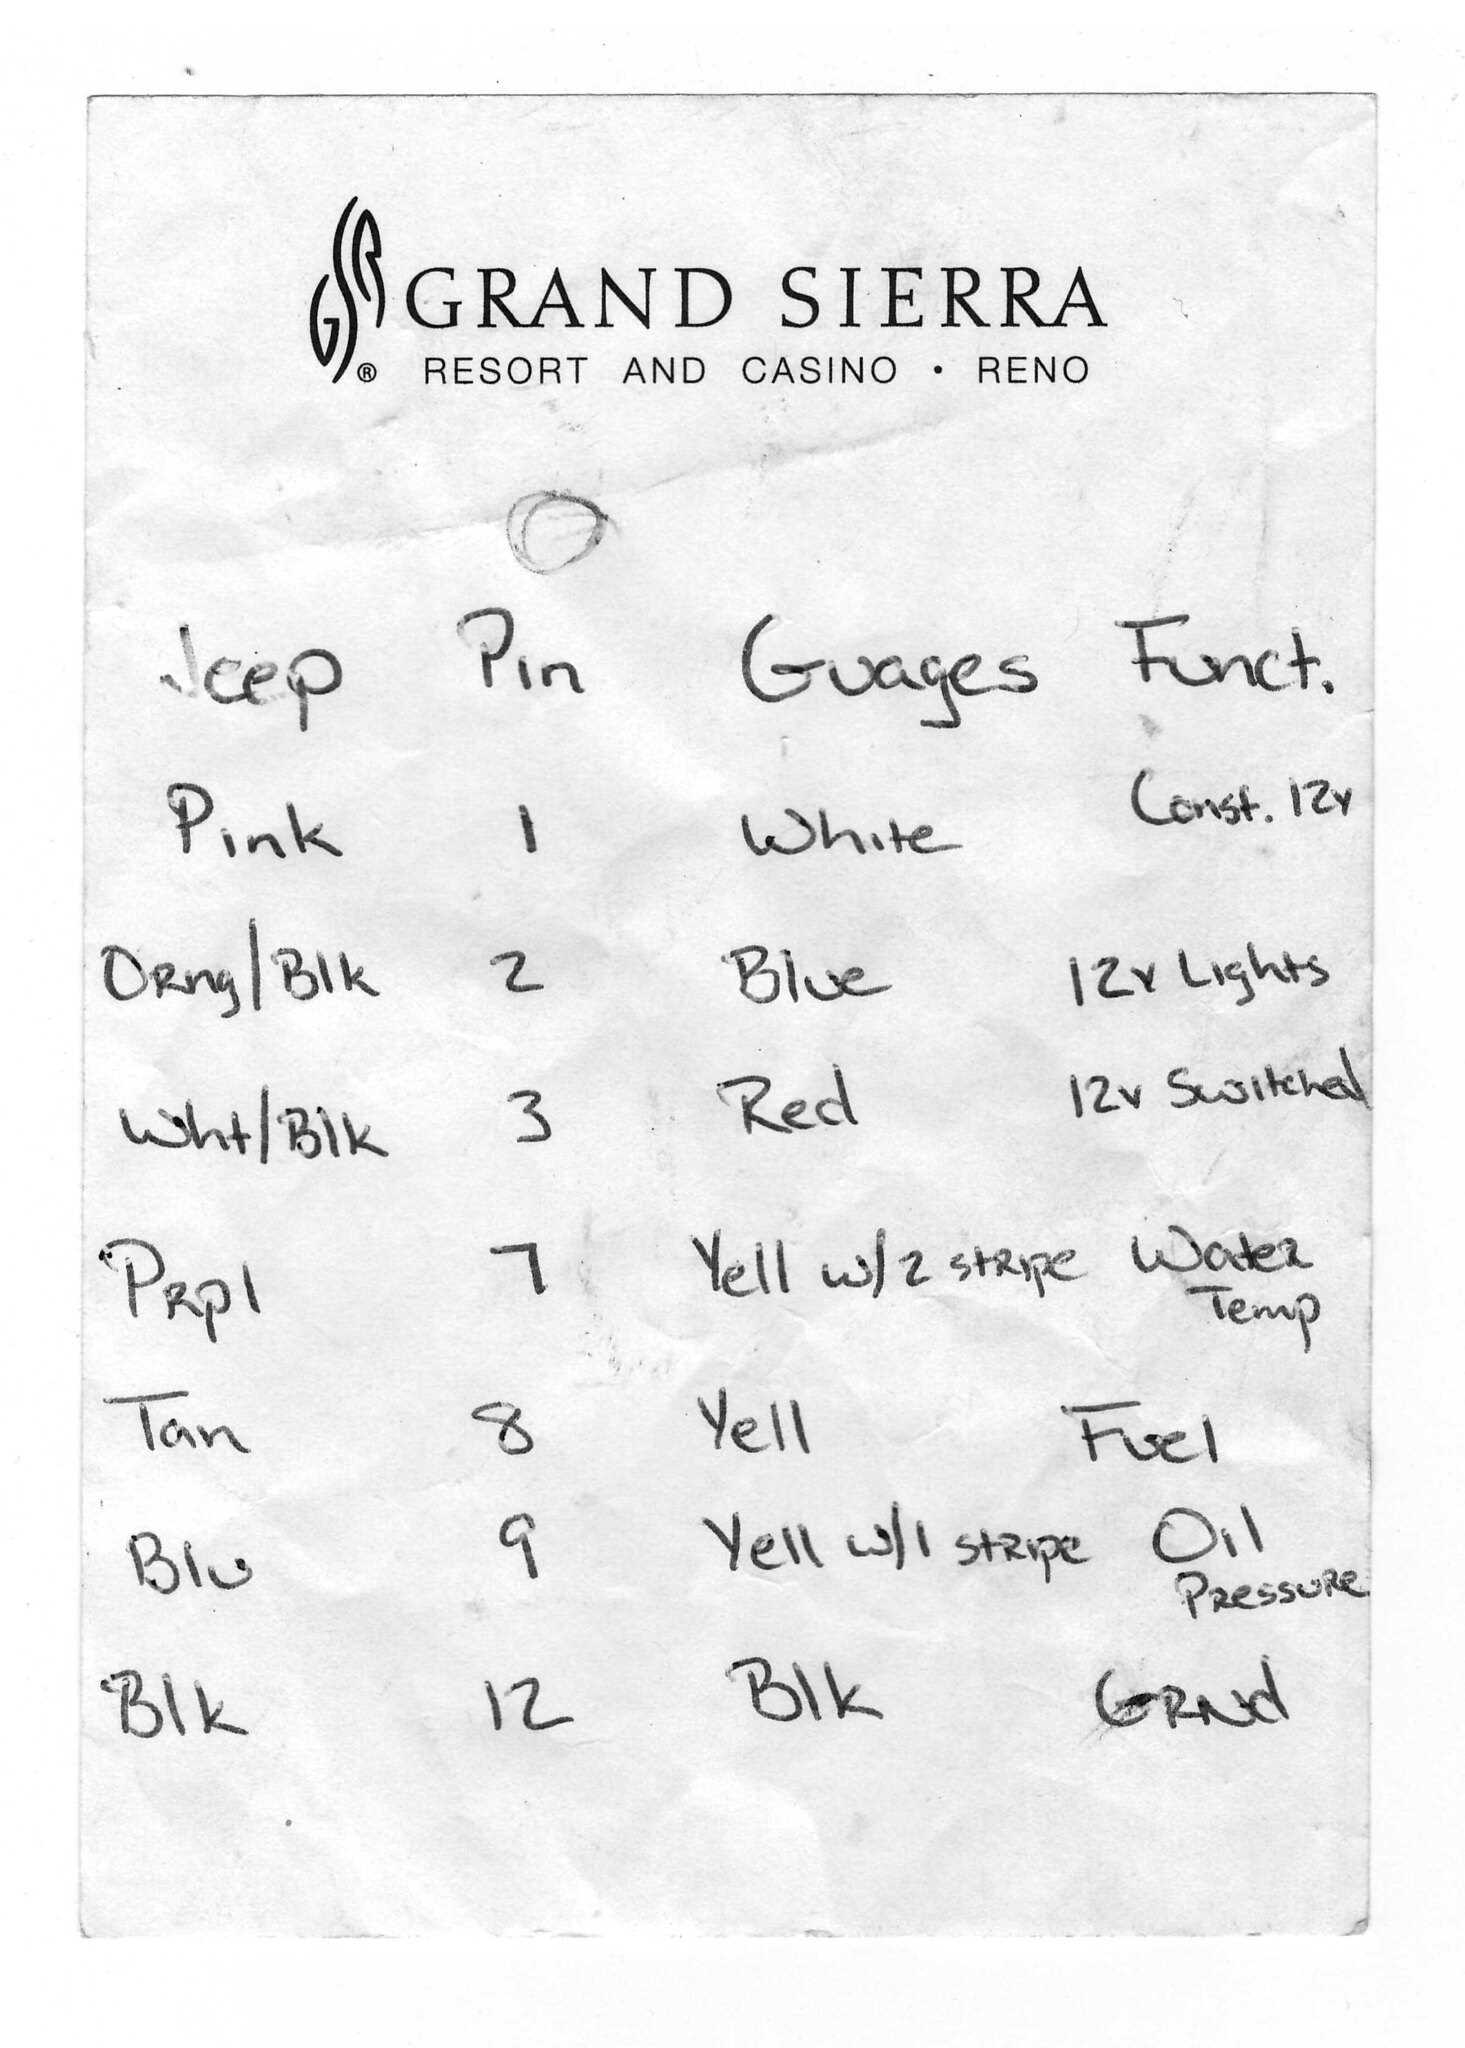 GSR® GRAND SIERRA
RESORT AND CASINO • RENO
Jeep Pin Guages Funct.
Pink 1 White Const. 12v
Orng/Blk 2 Blue 12v Lights
Wht/Blk 3 Red 12v Switched
Prpl 7 Yell w/2 stripe Water
Temp
Tan 8 Yell Fuel
Blu 9 Yell w/1 stripe Oil
Pressure
Blk 12 Blk GRNd